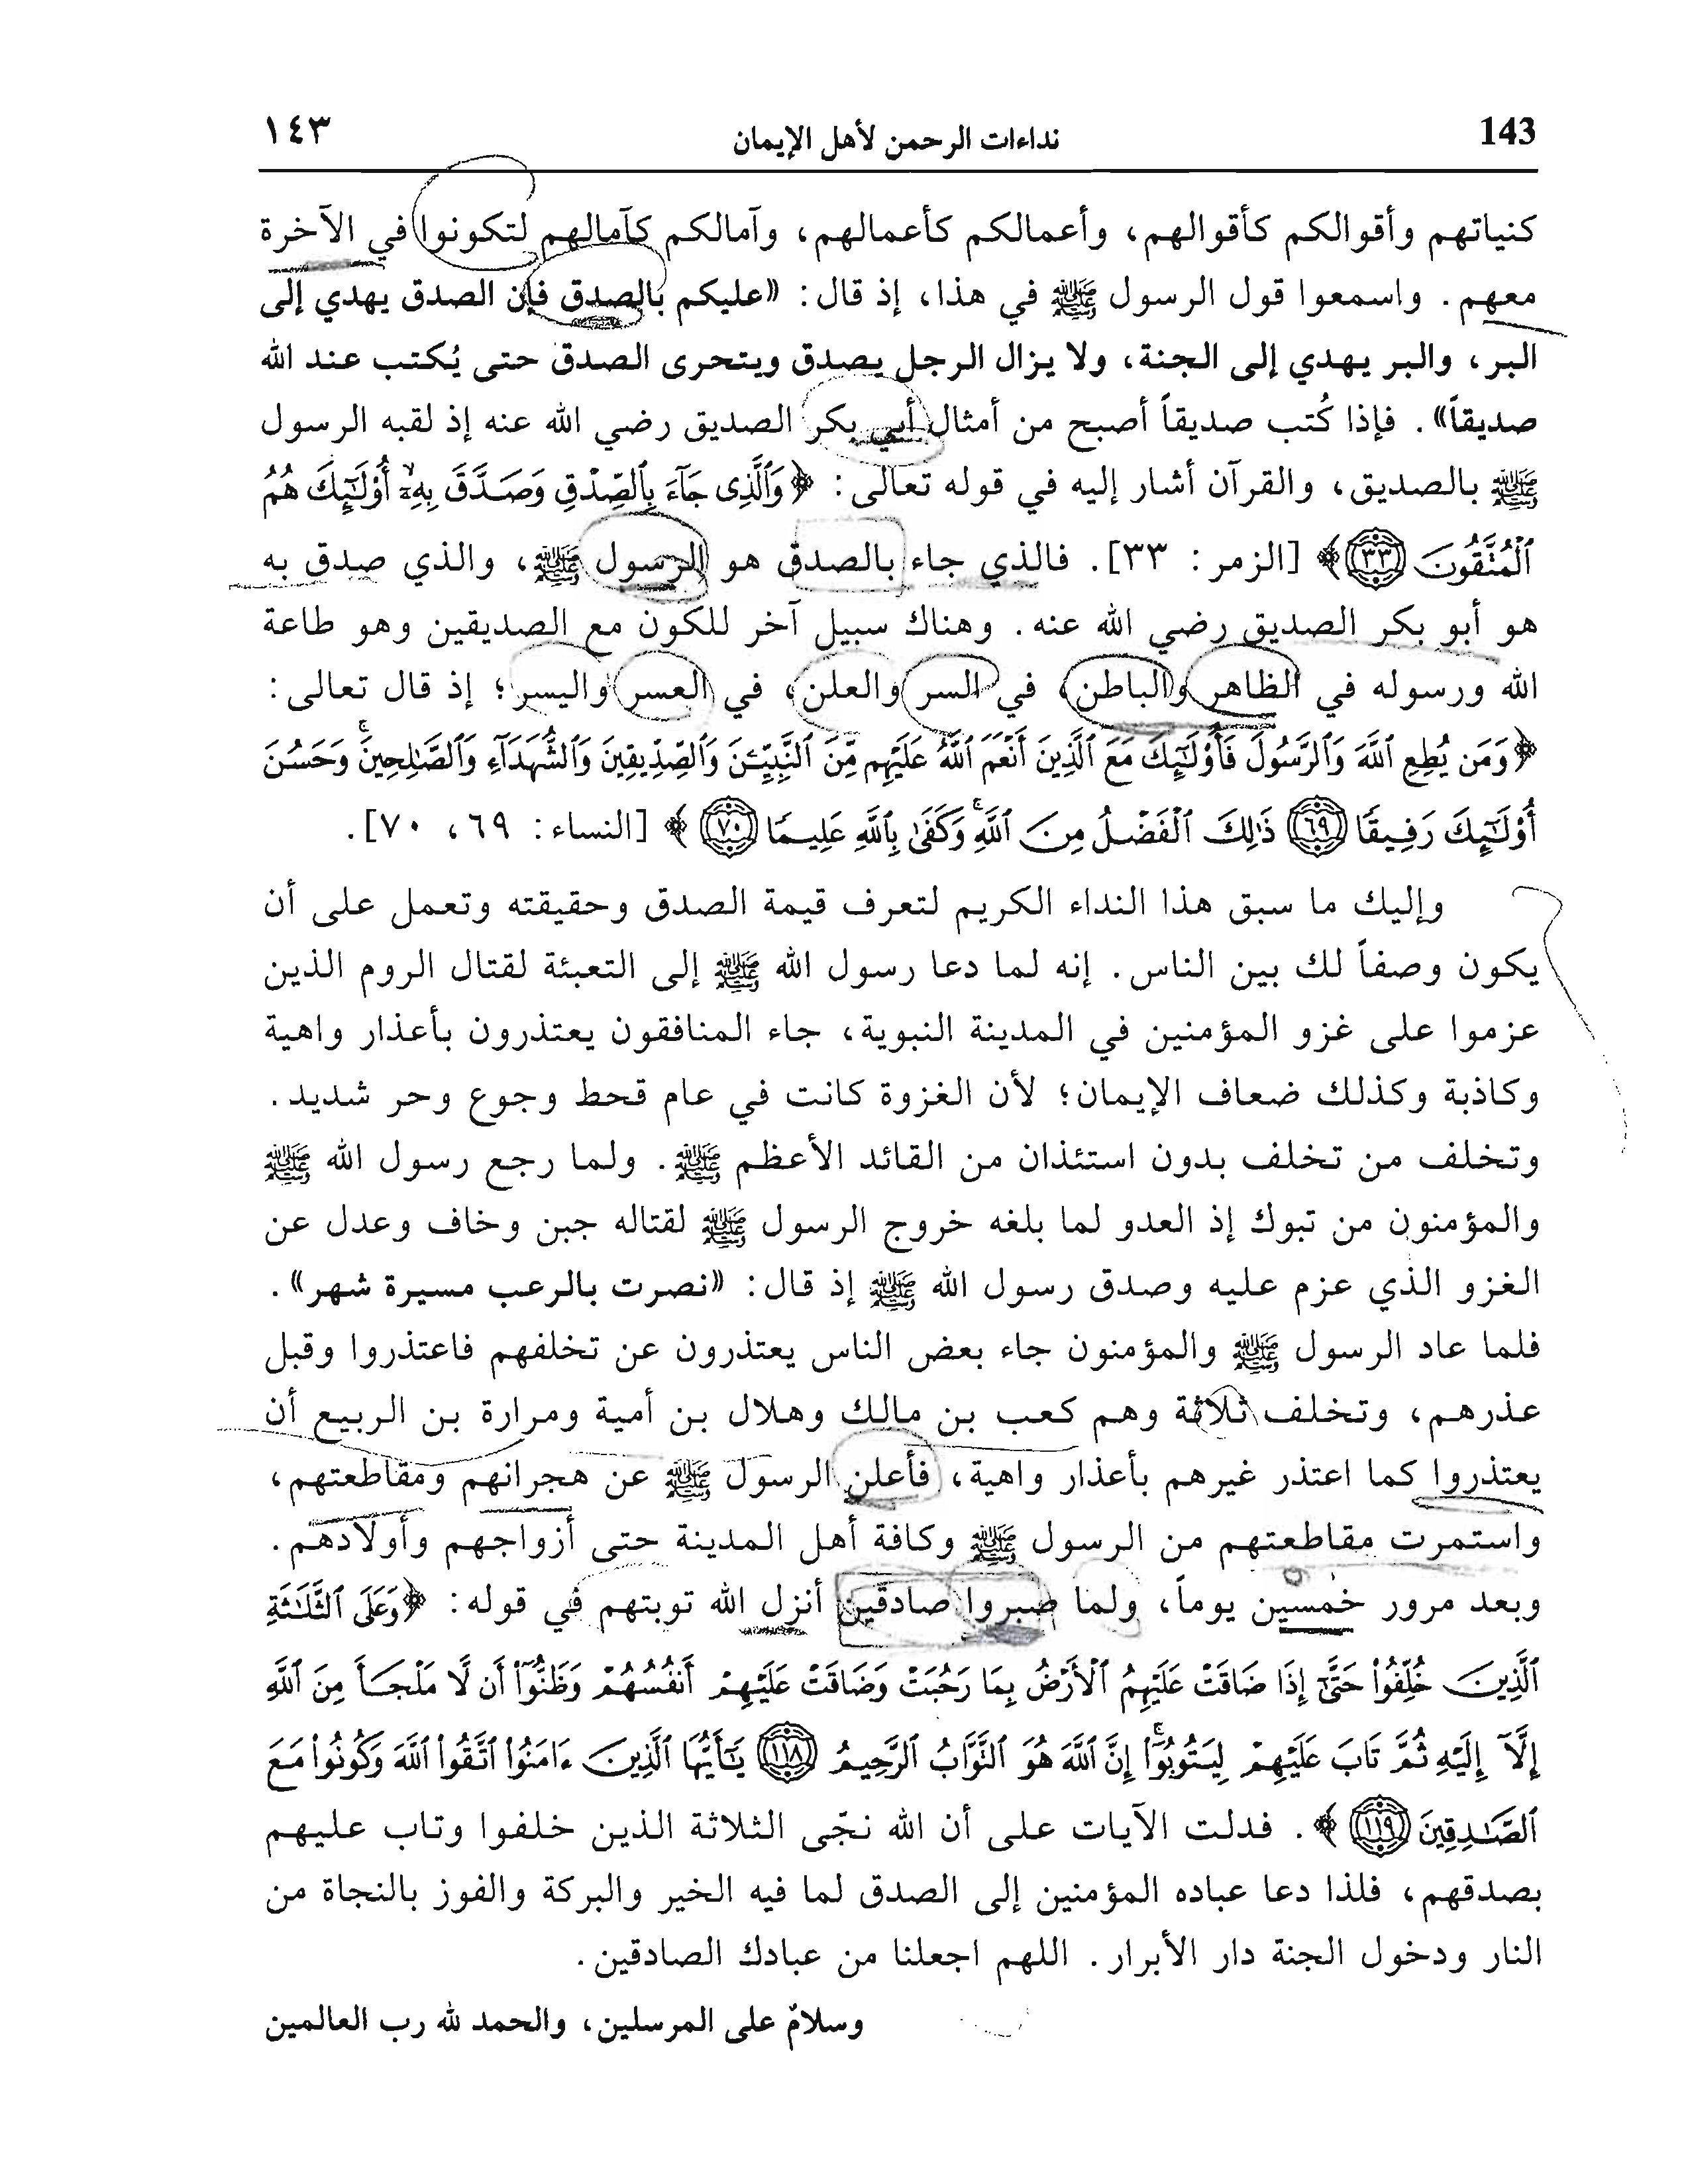 143 نداءات الرحمن لأهل الإيمان ١٤٣
كنياتهم وأقوالكم كأقوالهم، وأعمالكم كأعمالهم، وآمالكم كآمالهم لتكونوا في الآخرة
معهم. واسمعوا قول الرسول ﷺ في هذا، إذ قال: «عليكم بالصدق فإن الصدق يهدي إلى
البر، والبر يهدي إلى الجنة، ولا يزال الرجل يصدق ويتحرى الصدق حتى يُكتب عند الله
صديقاً». فإذا كُتب صديقاً أصبح من أمثال أبي بكر الصديق رضي الله عنه إذ لقبه الرسول
ﷺ بالصديق، والقرآن أشار إليه في قوله تعالى: ﴿وَٱلَّذِى جَآءَ بِٱلصِّدْقِ وَصَدَّقَ بِهِۦٓ أُو۟لَـٰٓئِكَ هُمُ
ٱلْمُتَّقُونَ ٣٣﴾ [الزمر: ٣٣]. فالذي جاء بالصدق هو الرسول ﷺ، والذي صدق به
هو أبو بكر الصديق رضي الله عنه. وهناك سبيل آخر للكون مع الصديقين وهو طاعة
الله ورسوله في الظاهر والباطن، في السر والعلن، في العسر واليسر؛ إذ قال تعالى:
﴿وَمَن يُطِعِ ٱللَّهَ وَٱلرَّسُولَ فَأُو۟لَـٰٓئِكَ مَعَ ٱلَّذِينَ أَنْعَمَ ٱللَّهُ عَلَيْهِم مِّنَ ٱلنَّبِيِّـۧنَ وَٱلصِّدِّيقِينَ وَٱلشُّهَدَآءِ وَٱلصَّـٰلِحِينَ ۚ وَحَسُنَ
أُو۟لَـٰٓئِكَ رَفِيقًا ٦٩ ذَٰلِكَ ٱلْفَضْلُ مِنَ ٱللَّهِ ۚ وَكَفَىٰ بِٱللَّهِ عَلِيمًا ٧٠﴾ [النساء: ٦٩، ٧٠].
وإليك ما سبق هذا النداء الكريم لتعرف قيمة الصدق وحقيقته وتعمل على أن
يكون وصفاً لك بين الناس. إنه لما دعا رسول الله ﷺ إلى التعبئة لقتال الروم الذين
عزموا على غزو المؤمنين في المدينة النبوية، جاء المنافقون يعتذرون بأعذار واهية
وكاذبة وكذلك ضعاف الإيمان؛ لأن الغزوة كانت في عام قحط وجوع وحر شديد.
وتخلف من تخلف بدون استئذان من القائد الأعظم ﷺ. ولما رجع رسول الله ﷺ
والمؤمنون من تبوك إذ العدو لما بلغه خروج الرسول ﷺ لقتاله جبن وخاف وعدل عن
الغزو الذي عزم عليه وصدق رسول الله ﷺ إذ قال: «نصرت بالرعب مسيرة شهر».
فلما عاد الرسول ﷺ والمؤمنون جاء بعض الناس يعتذرون عن تخلفهم فاعتذروا وقبل
عذرهم، وتخلف ثلاثة وهم كعب بن مالك وهلال بن أمية ومرارة بن الربيع أن
يعتذروا كما اعتذر غيرهم بأعذار واهية، فأعلن الرسول ﷺ عن هجرانهم ومقاطعتهم،
واستمرت مقاطعتهم من الرسول ﷺ وكافة أهل المدينة حتى أزواجهم وأولادهم.
وبعد مرور خمسين يوماً، ولما صبروا صادقين أنزل الله توبتهم في قوله: ﴿وَعَلَى ٱلثَّلَـٰثَةِ
ٱلَّذِينَ خُلِّفُوا۟ حَتَّىٰٓ إِذَا ضَاقَتْ عَلَيْهِمُ ٱلْأَرْضُ بِمَا رَحُبَتْ وَضَاقَتْ عَلَيْهِمْ أَنفُسُهُمْ وَظَنُّوٓا۟ أَن لَّا مَلْجَأَ مِنَ ٱللَّهِ
إِلَّآ إِلَيْهِ ثُمَّ تَابَ عَلَيْهِمْ لِيَتُوبُوٓا۟ ۚ إِنَّ ٱللَّهَ هُوَ ٱلتَّوَّابُ ٱلرَّحِيمُ ١١٨ يَـٰٓأَيُّهَا ٱلَّذِينَ ءَامَنُوا۟ ٱتَّقُوا۟ ٱللَّهَ وَكُونُوا۟ مَعَ
ٱلصَّـٰدِقِينَ ١١٩﴾. فدلت الآيات على أن الله نجّى الثلاثة الذين خلفوا وتاب عليهم
بصدقهم، فلذا دعا عباده المؤمنين إلى الصدق لما فيه الخير والبركة والفوز بالنجاة من
النار ودخول الجنة دار الأبرار. اللهم اجعلنا من عبادك الصادقين.
وسلامٌ على المرسلين، والحمد لله رب العالمين